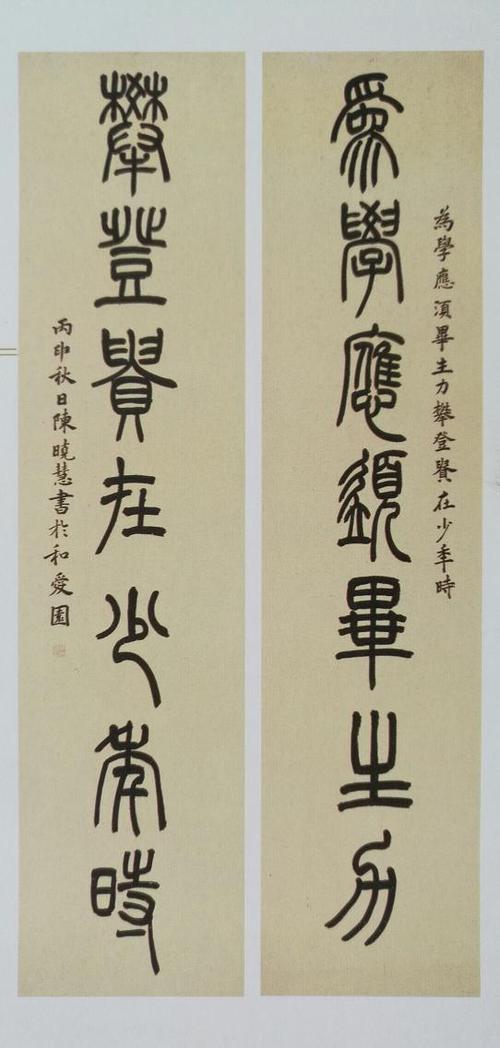 為學應須畢生力攀登貴在少年時
為學應須畢生力
攀登貴在少年時
丙申秋日陳曉慧書於和愛園